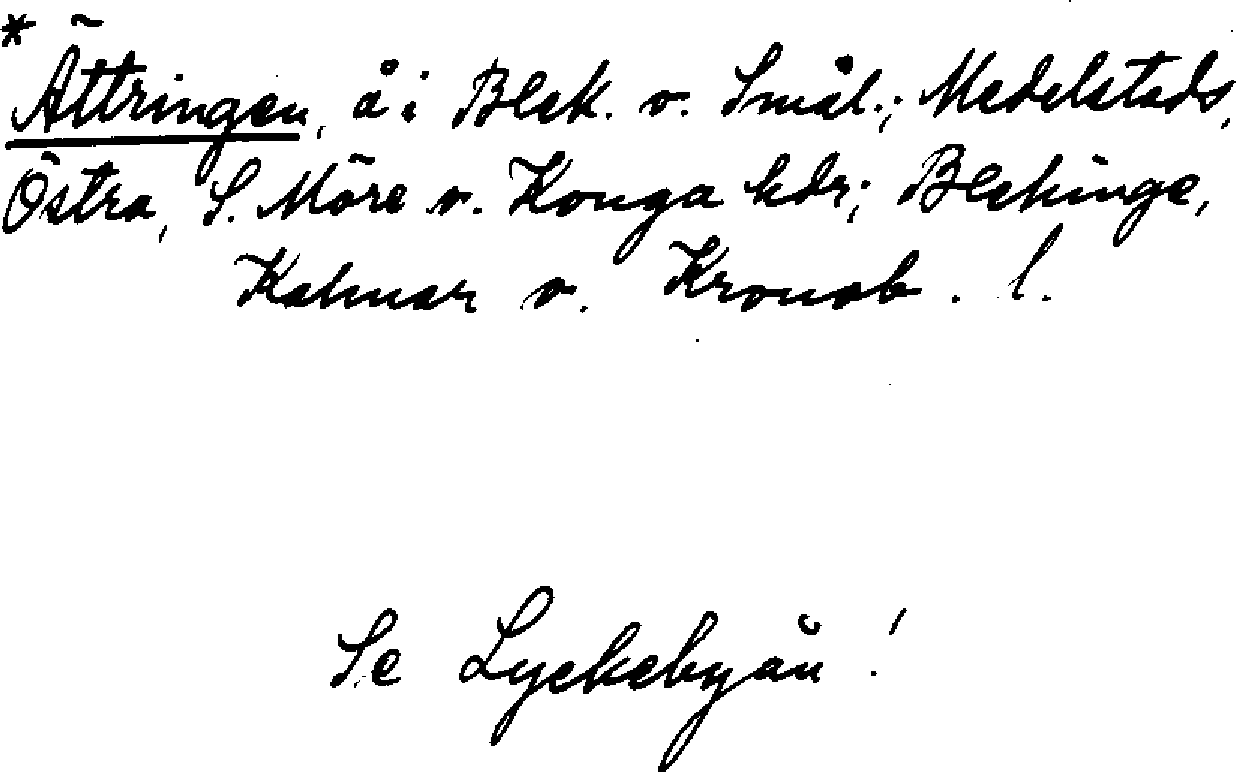 *Ättringen, å i Blek. o. Smål.; Medelstads,
Östra, S. Möre o. Konga hdr; Blekinge,
Kalmar o. Kronob. l.
Se Lyckebyån!